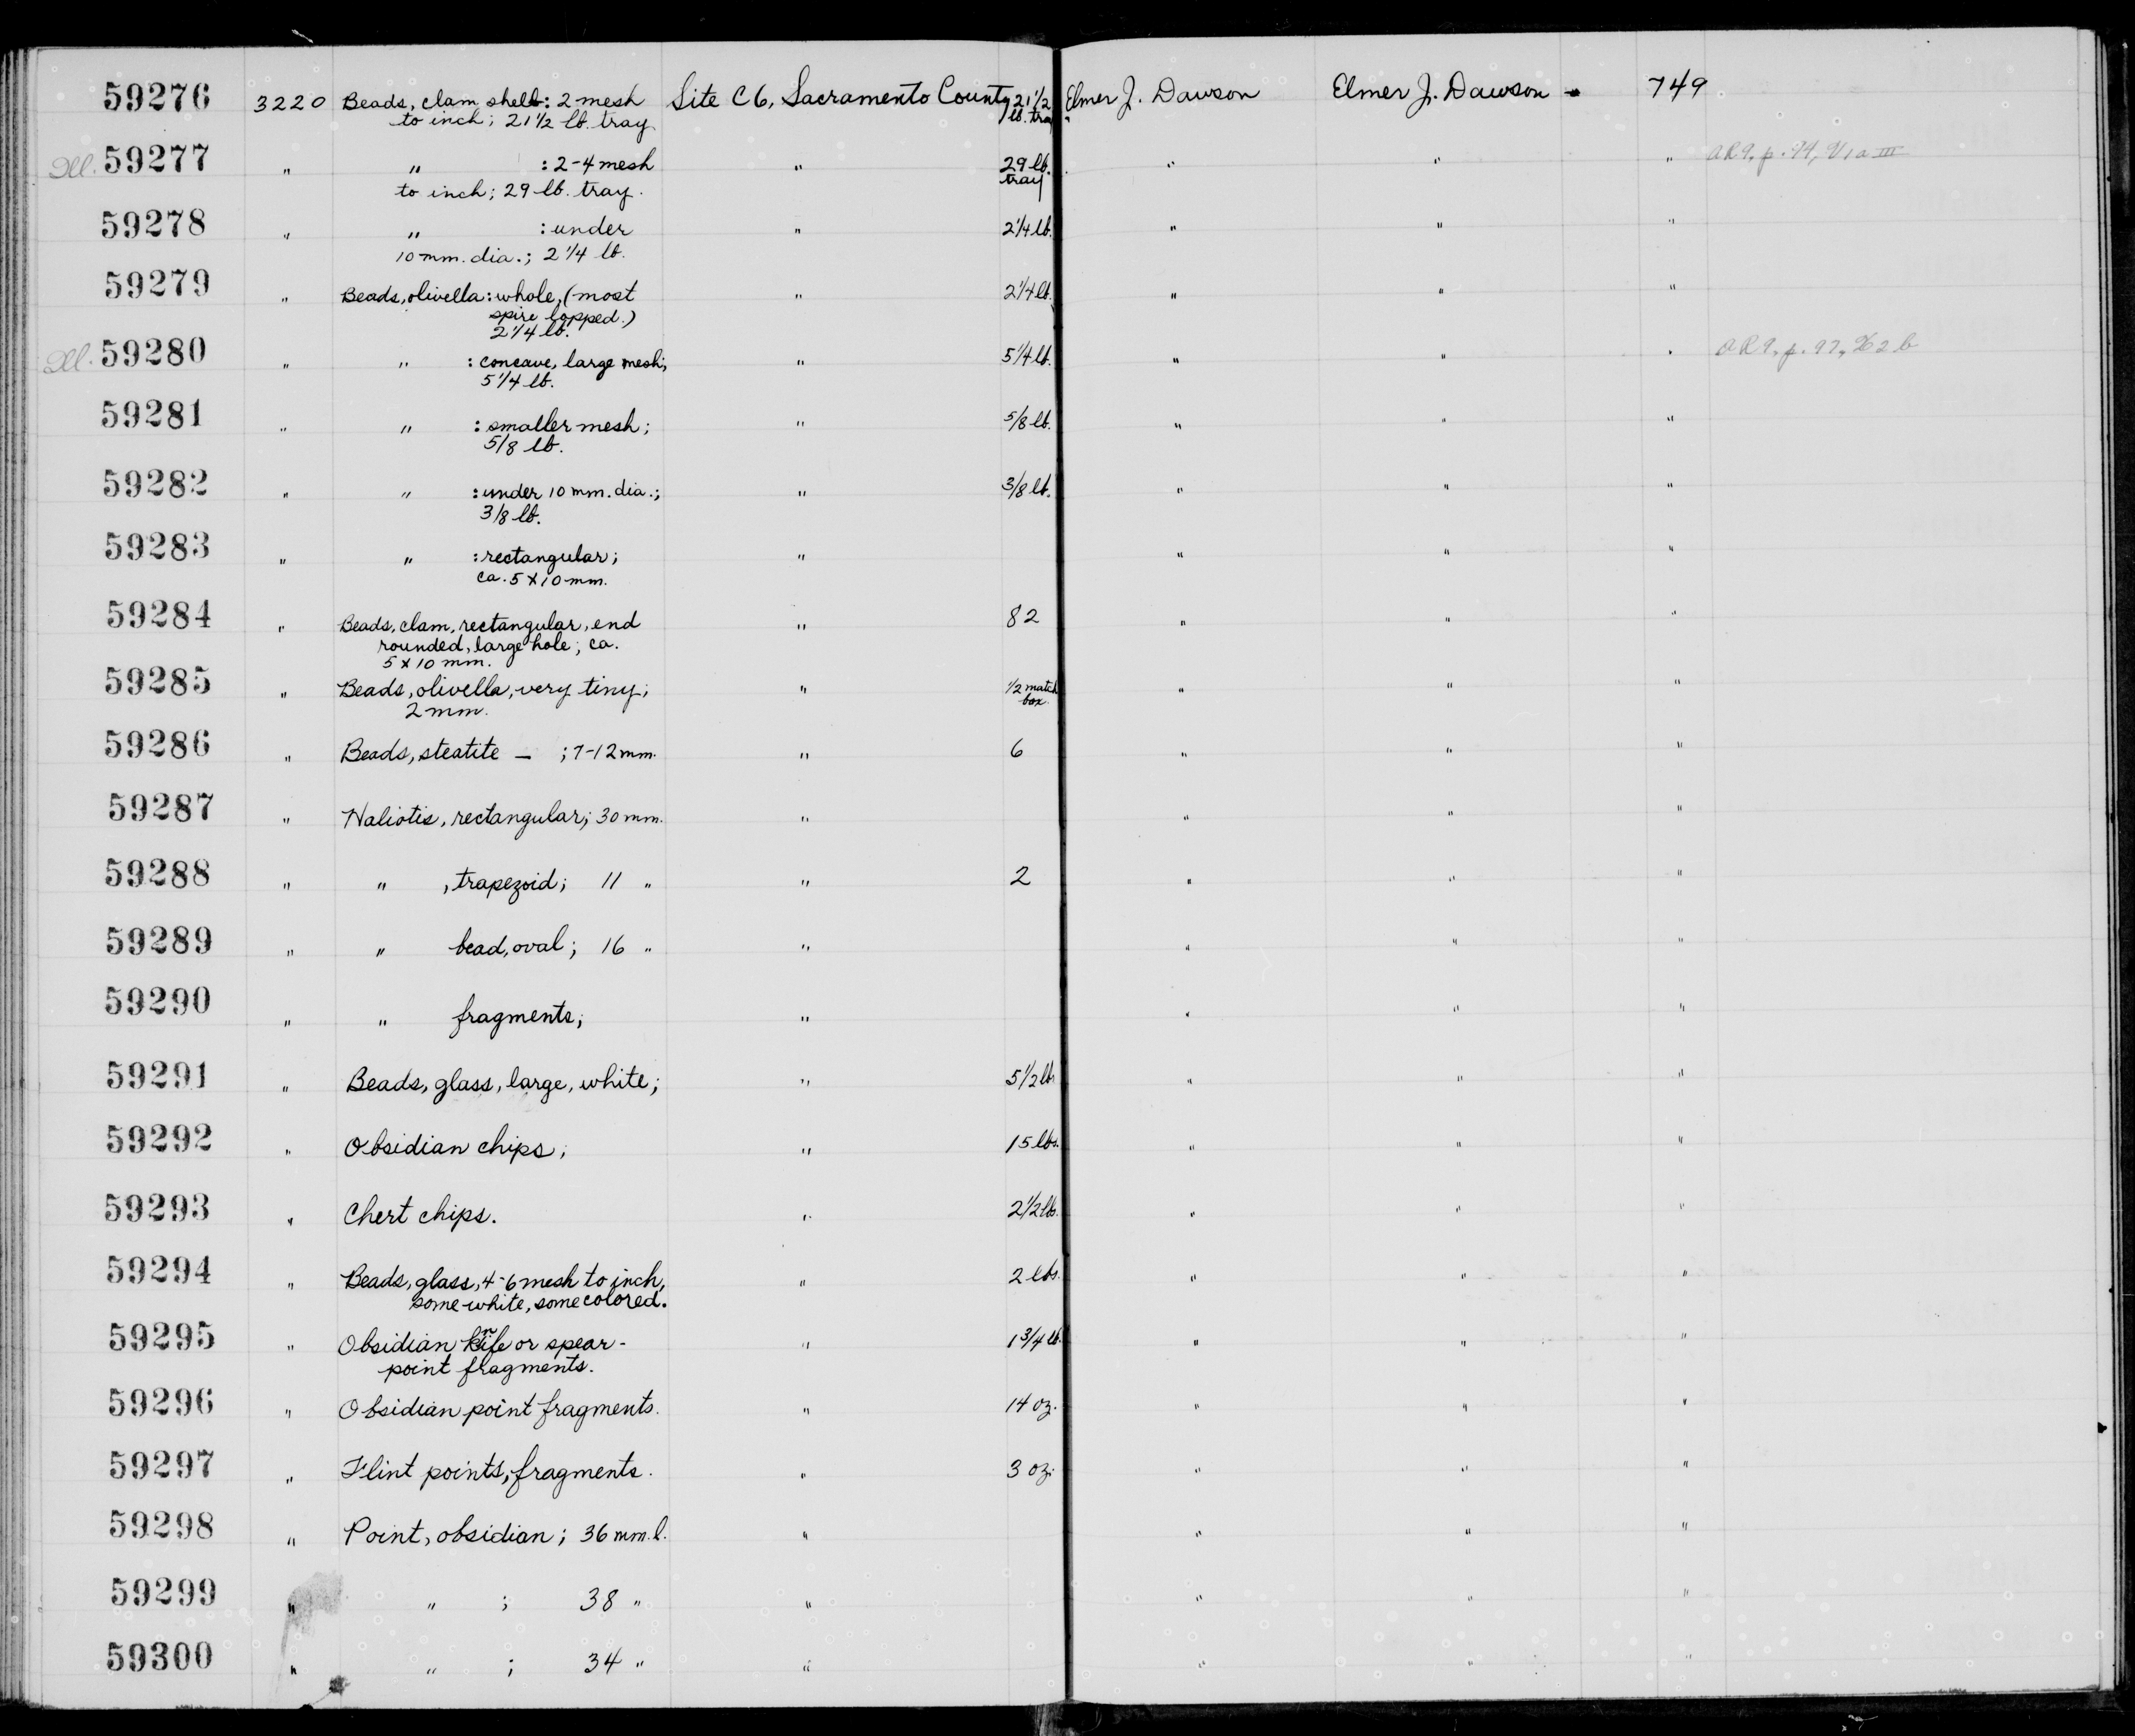 59276 3220 Beads, clam shell: 2 mesh Site C6, Sacramento County 21 1/2 Elmer J. Dawson Elmer J. Dawson - 749
to inch; 21 1/2 lb. tray. lb. tray
Ill. 59277 " " : 2-4 mesh " 29 lb. " " " AR9, p. 94,
to inch; 29 lb. tray. tray
59278 " " : under " 2 1/4 lb. " " "
10 mm. dia.; 2 1/4 lb.
59279 " Beads, olivella: whole, (most " 2 1/4 lb. " " "
spire lopped.)
2 1/4 lb.
Ill. 59280 " " : concave, large mesh; " 5 1/4 lb. " " " AR9, p. 97,
5 1/4 lb.
59281 " " : smaller mesh; " 5/8 lb. " " "
5/8 lb.
59282 " " : under 10 mm. dia.; " 3/8 lb. " " "
3/8 lb.
59283 " " : rectangular; " " " "
ca. 5 x 10 mm.
59284 " Beads, clam, rectangular, end " 82 " " "
rounded, large hole; ca.
5 x 10 mm.
59285 " Beads, olivella, very tiny; " 1/2 match " " "
2 mm. box.
59286 " Beads, steatite — ; 7-12 mm. " 6 " " "
59287 " Haliotis, rectangular; 30 mm. " " " "
59288 " " , trapezoid; 11 " " 2 " " "
59289 " " bead, oval; 16 " " " " "
59290 " " fragments; " " " "
59291 " Beads, glass, large, white; " 5 1/2 lb. " " "
59292 " Obsidian chips; " 15 lbs. " " "
59293 " Chert chips. " 2 1/2 lbs. " " "
59294 " Beads, glass, 4-6 mesh to inch, " 2 lbs. " " "
some white, some colored.
59295 " Obsidian knife or spear- " 1 3/4 lb. " " "
point fragments.
59296 " Obsidian point fragments. " 14 oz. " " "
59297 " Flint points, fragments. " 3 oz. " " "
59298 " Point, obsidian; 36 mm. l. " " " "
59299 " " ; 38 " " " " "
59300 " " ; 34 " " " " "